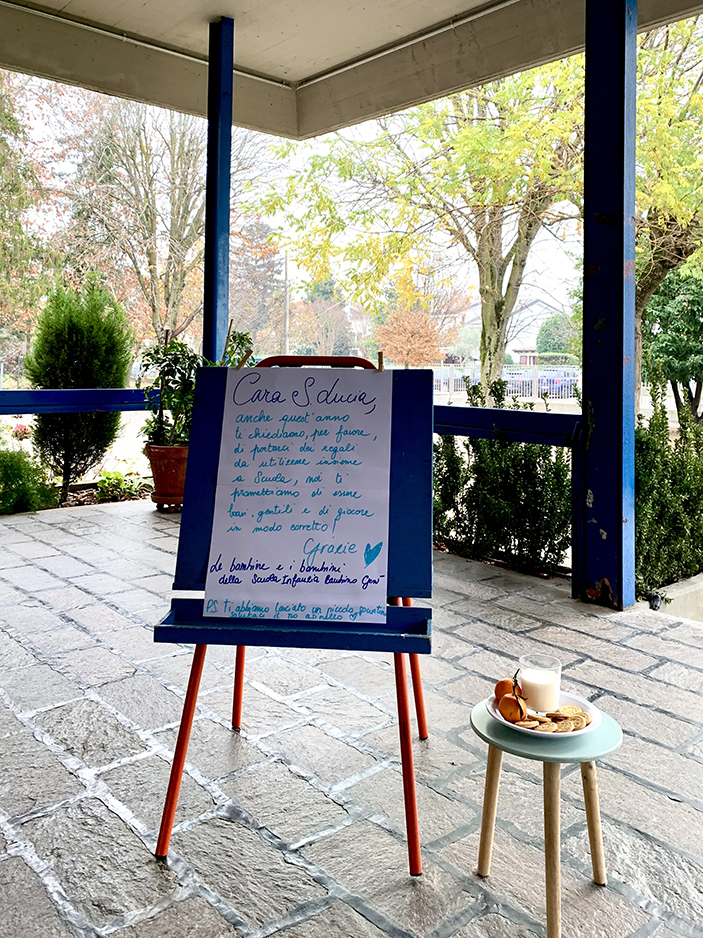 Cara S Lucia,
anche quest'anno
te chiediamo, per favore,
di portarci dei regali
da utilizzare insieme
a Scuola, noi ti
promettiamo di essere
bravi, gentili e di giocare
in modo corretto!
Grazie
Le bambine e i bambini
della Scuola Infanzia
P.S. Ti abbiamo lasciato un piccolo spuntino
salutaci il tuo asinello